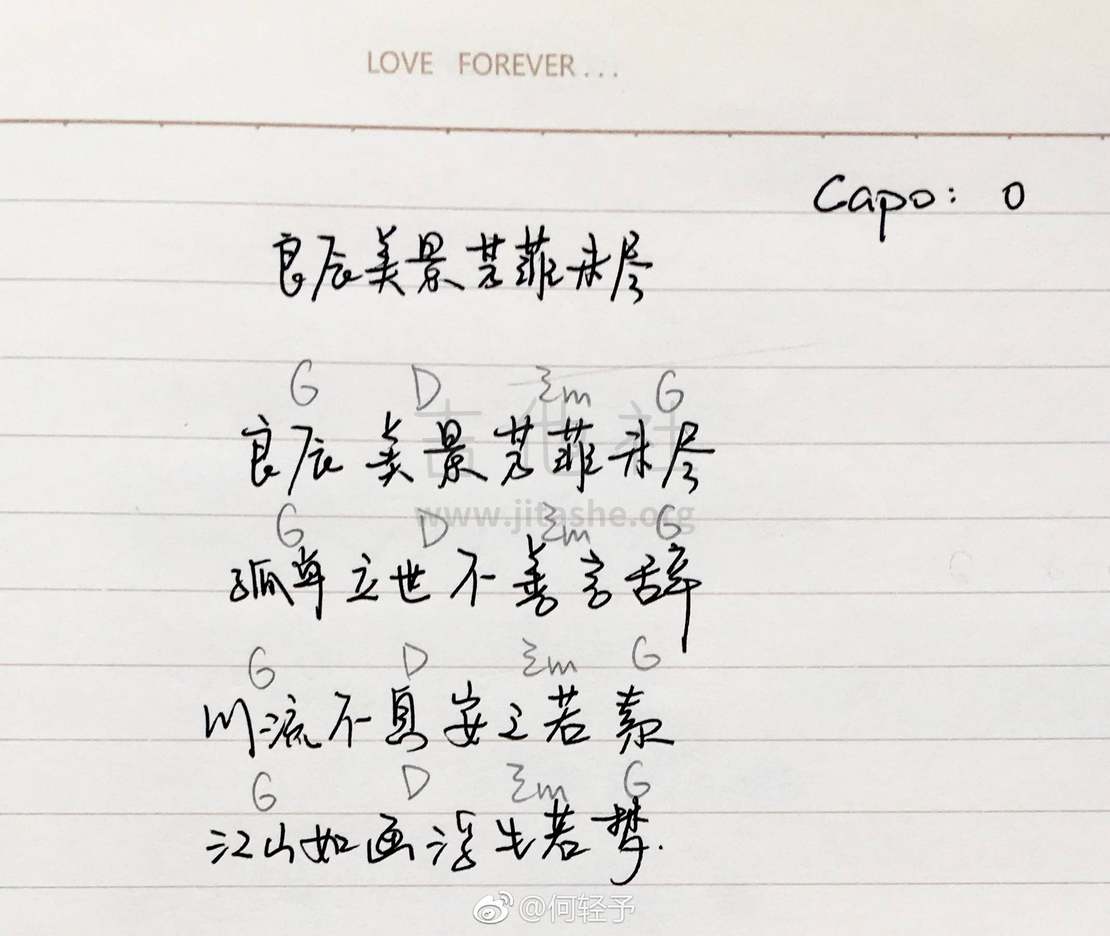 LOVE FOREVER...
Capo: 0
良辰美景芳菲未尽
G D Em G
良辰美景芳菲未尽
吉他社
www.jitashe.org
G D Em G
孤单立世不善言辞
G D Em G
川流不息安之若素
G D Em G
江山如画浮生若梦.
@何轻予